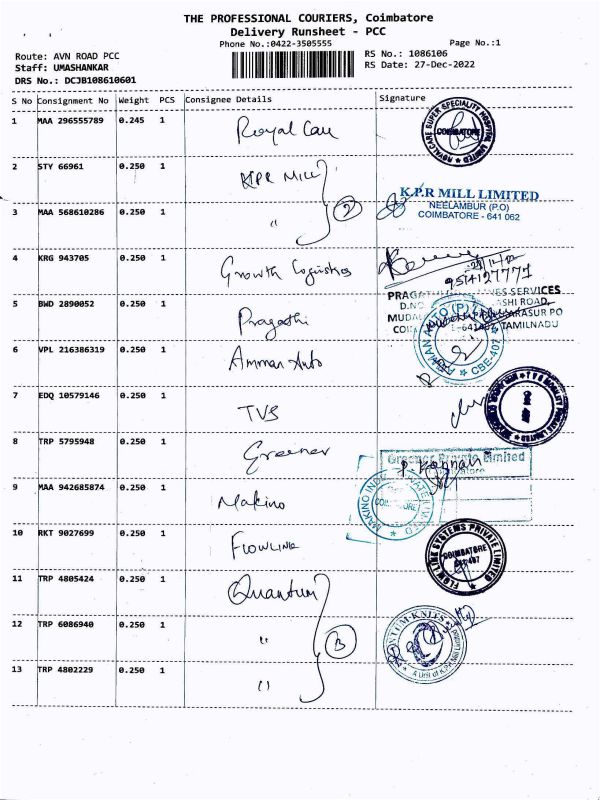 THE PROFESSIONAL COURIERS, Coimbatore
Delivery Runsheet - PCC
Phone No.:0422-3505555 Page No.:1
Route: AVN ROAD PCC RS No.: 1086106
Staff: UMASHANKAR RS Date: 27-Dec-2022
DRS No.: DCJB108610601
S No Consignment No Weight PCS Consignee Details Signature
1 MAA 296555789 0.245 1 Royal Care ROYALCARE SUPER SPECIALITY HOSPITAL LIMITED COIMBATORE
2 STY 66961 0.250 1 KPR Mill 2 K.P.R MILL LIMITED
NEELAMBUR (P.O)
3 MAA 568610286 0.250 1 " COIMBATORE - 641 062
4 KRG 943705 0.250 1 Growth Logistics
PRAGATHI SERVICES
5 BWD 2890052 0.250 1 Pragathi D.NO ASHI ROAD,
ARASUR PO
641407, TAMILNADU
6 VPL 216386319 0.250 1 Amman Auto AUTO (P) CBE-407
7 EDQ 10579146 0.250 1 TVS
8 TRP 5795948 0.250 1 Greener Greener Private Limited
9 MAA 942685874 0.250 1 Makino MAKINO
10 RKT 9027699 0.250 1 Flowlink FLOW LINK SYSTEMS PRIVATE LIMITED COIMBATORE
11 TRP 4805424 0.250 1 Quantum
12 TRP 6086940 0.250 1 " 3 KNITS
13 TRP 4802229 0.250 1 "